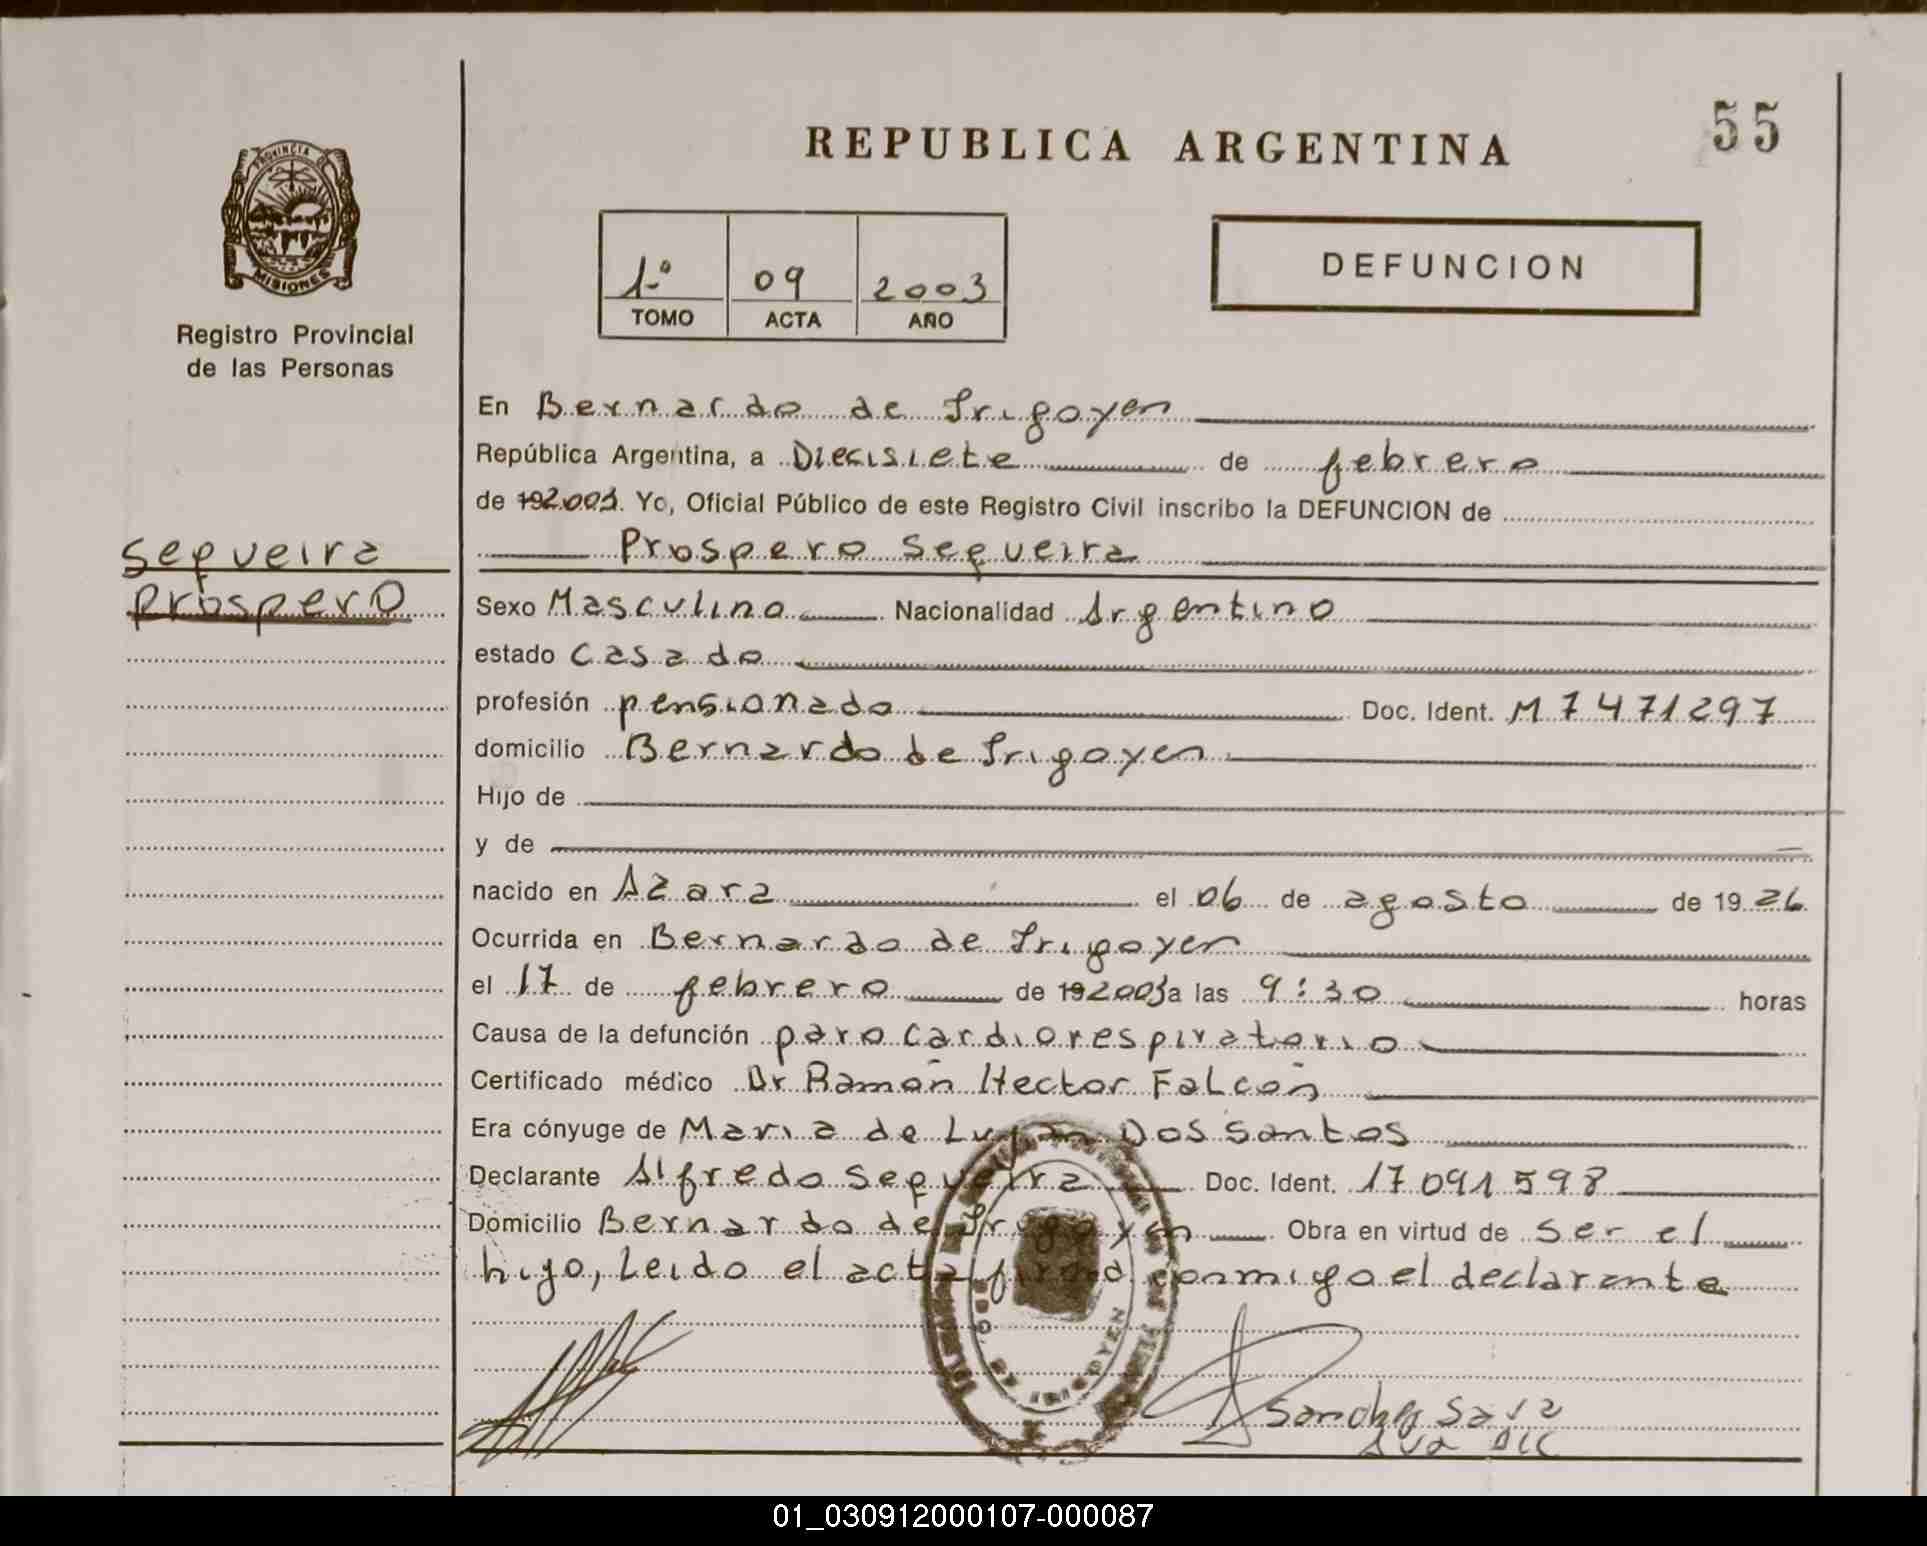 REPUBLICA ARGENTINA
55
PROVINCIA DE
MISIONES
Registro Provincial
de las Personas
1º 09 2003
TOMO ACTA AÑO
DEFUNCION
En Bernardo de Irigoyen
República Argentina, a Diecisiete de febrero
de 192003. Yo, Oficial Público de este Registro Civil inscribo la DEFUNCION de
Prospero Sequeira
Sequeira
Prospero
Sexo Masculino Nacionalidad Argentino
estado Casado
profesión pensionado Doc. Ident. M 7471297
domicilio Bernardo de Irigoyen
Hijo de
y de
nacido en Azara el 06 de agosto de 19 26
Ocurrida en Bernardo de Irigoyen
el 17 de febrero de 192003 a las 9:30 horas
Causa de la defunción paro cardiorespiratorio
Certificado médico Dr Ramón Hector Falcón
Era cónyuge de Maria de Luján Dos Santos
Declarante Alfredo Sequeira Doc. Ident. 17091598
Domicilio Bernardo de Irigoyen Obra en virtud de ser el
hijo, Leido el acta firma conmigo el declarante
01_030912000107-000087